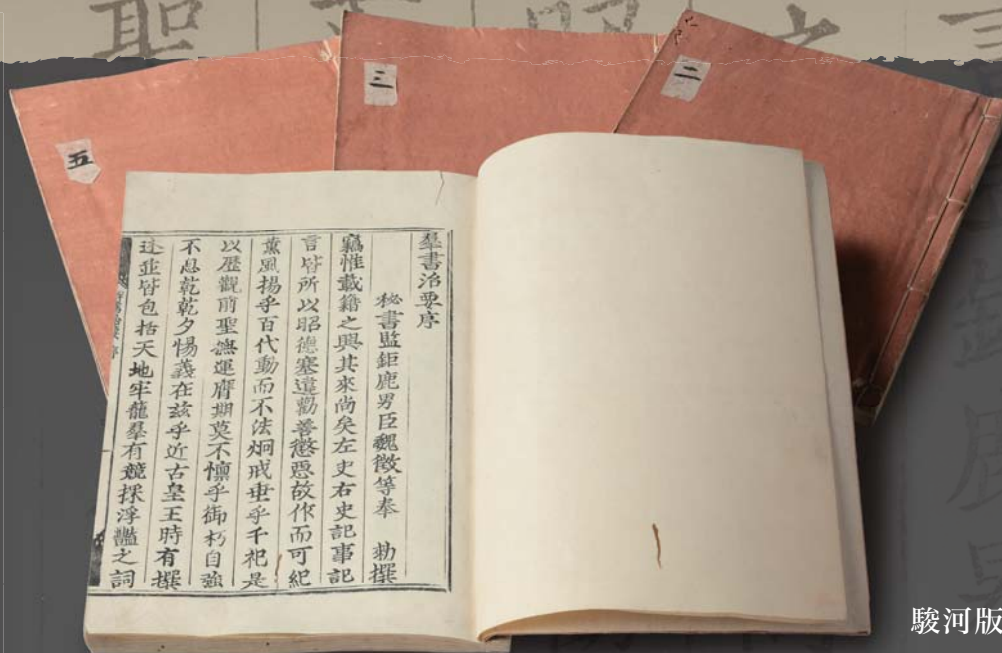 二
三
五
羣書治要序
秘書監鉅鹿男臣魏徵等奉　勅撰
竊惟載籍之興其來尚矣左史右史記事記
言皆所以昭德塞違勸善懲惡故作而可紀
薰風揚乎百代動而不法炯戒垂乎千祀是
以歷觀前聖撫運膺期莫不懍乎御朽自強
不息乾乾夕惕義在茲乎近古皇王時有撰
述並皆包括天地牢籠羣有競採浮豔之詞
駿河版